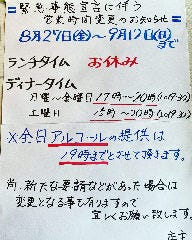 緊急事態宣言に伴う
営業時間変更のお知らせ
8月27日(金)~9月12日(日)
まで
ランチタイム お休み
ディナータイム
月曜~金曜日 17時~20時(lo19:30)
土曜日 15時~20時(lo19:30)
※全日アルコールの提供は
19時までとさせて頂きます。
尚、新たな要請などがあった場合は
変更となる事も有りますので
宜しくお願い致します。
店主